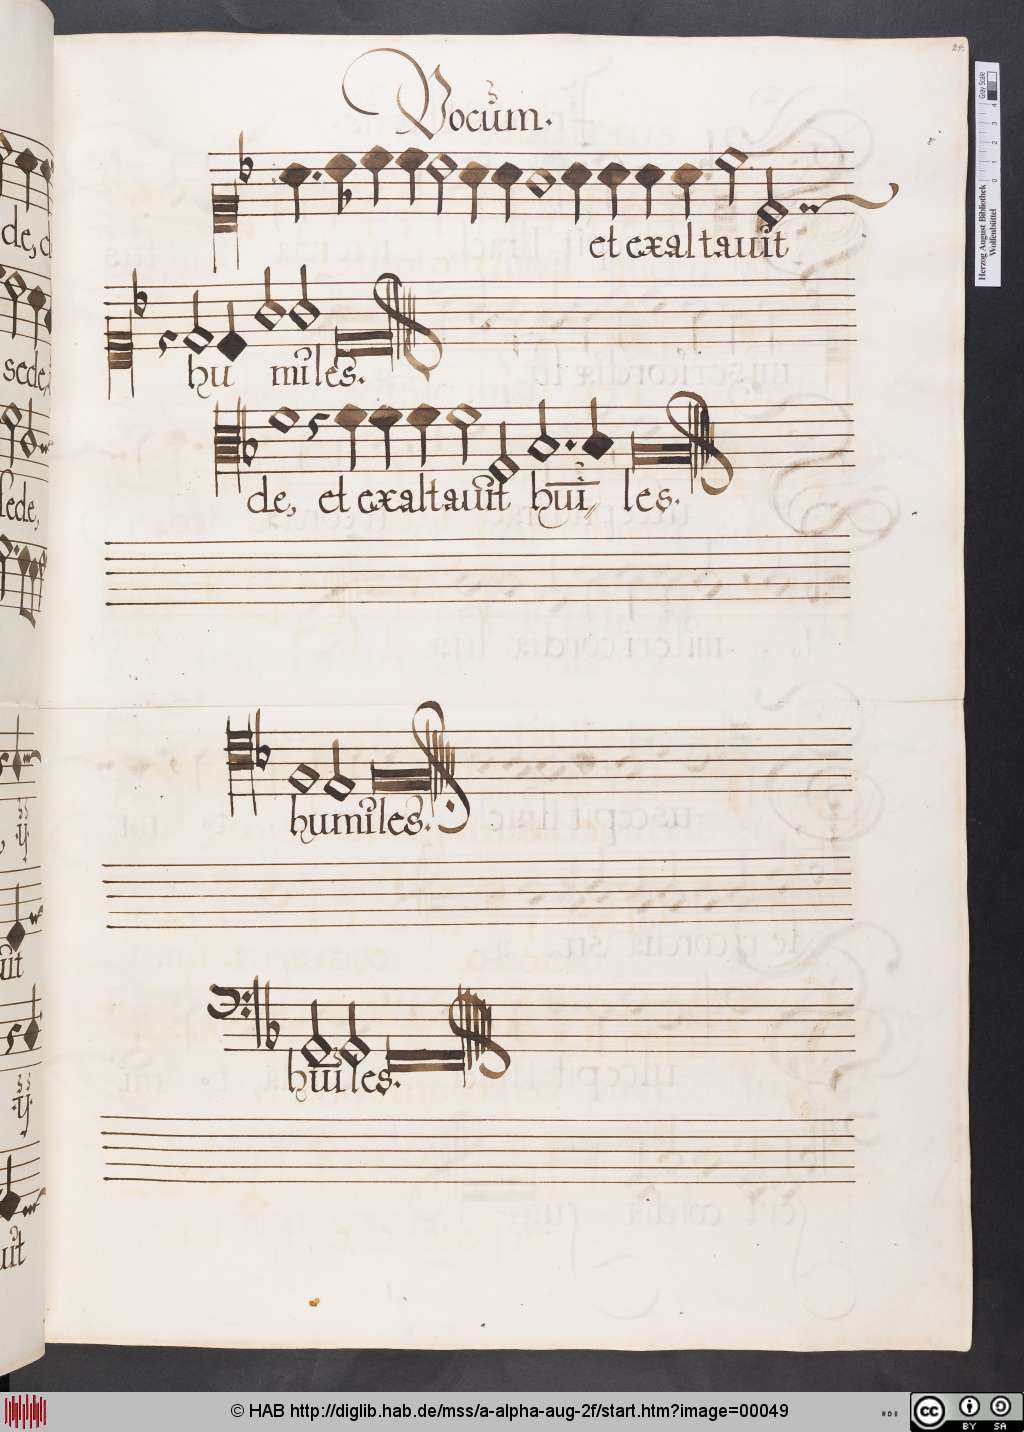 24.
Vocum.
et exaltauit
hu miles.
de, et exaltauit hui les.
humiles.
huiles.
de,
sede,
sede,
ij
uit
ij
uit
Herzog August Bibliothek
Wolfenbüttel
Gray Scale
0 1 2 3 4
© HAB http://diglib.hab.de/mss/a-alpha-aug-2f/start.htm?image=00049
HAB
cc BY SA